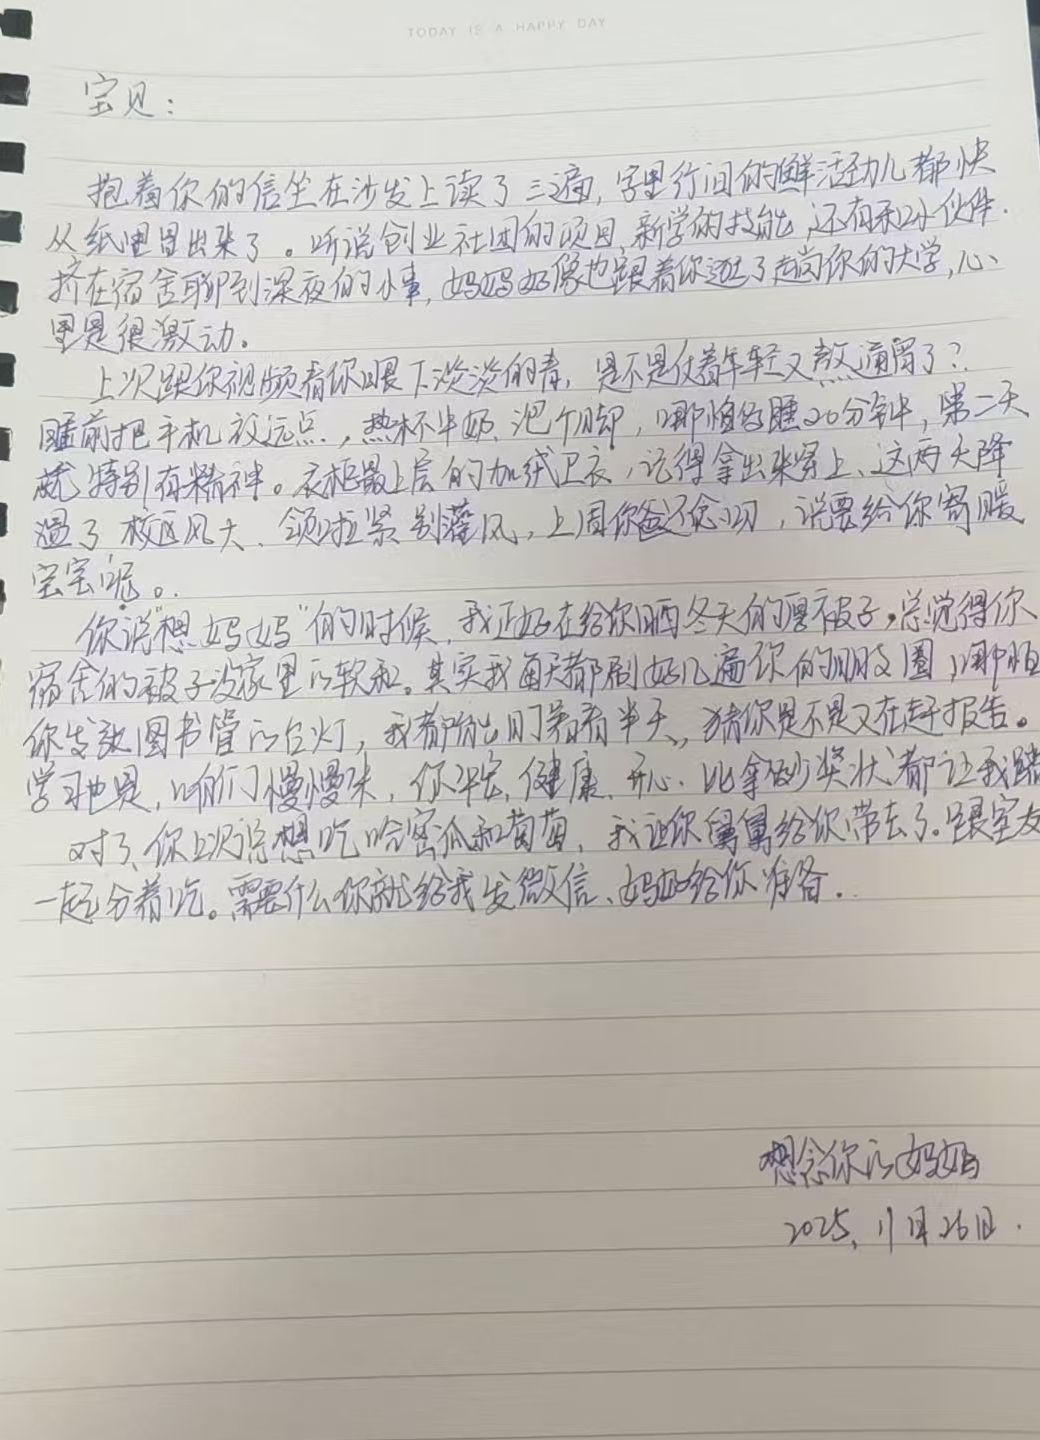 TODAY IS A HAPPY DAY
宝贝：
抱着你的信坐在沙发上读了三遍，字里行间的鲜活劲儿都快
从纸里冒出来了。听说创业社团的项目、新学的技能，还有和小伙伴
挤在宿舍聊到深夜的小事，妈妈好像也跟着你逛了趟你的大学，心
里是很激动。
上次跟你视频看你眼下淡淡的青，是不是仗着年轻又熬通宵了？
睡前把手机放远点，热杯牛奶、泡个脚，哪怕多睡20分钟，第二天
就特别有精神。衣柜最上层的加绒卫衣，记得拿出来穿上、这两天降
温了 校区风大、领口拉紧别灌风，上周你爸还念叨，说要给你寄暖
宝宝呢。
你说"想妈妈"的时候，我正好在给你晒冬天的厚被子，总觉得你
宿舍的被子没家里的软和。其实我每天都刷好几遍你的朋友圈，哪怕
你发张图书馆的台灯，我都能盯着看半天，猜你是不是又在赶报告。
学习也是，咱们慢慢来，你平安、健康、开心、比拿多少奖状都让我踏
对了、你上次说想吃哈密瓜和葡萄，我让你舅舅给你带去了。跟室友
一起分着吃。需要什么你就给我发微信、妈妈给你准备．
想念你的妈妈
2025，11月26日．